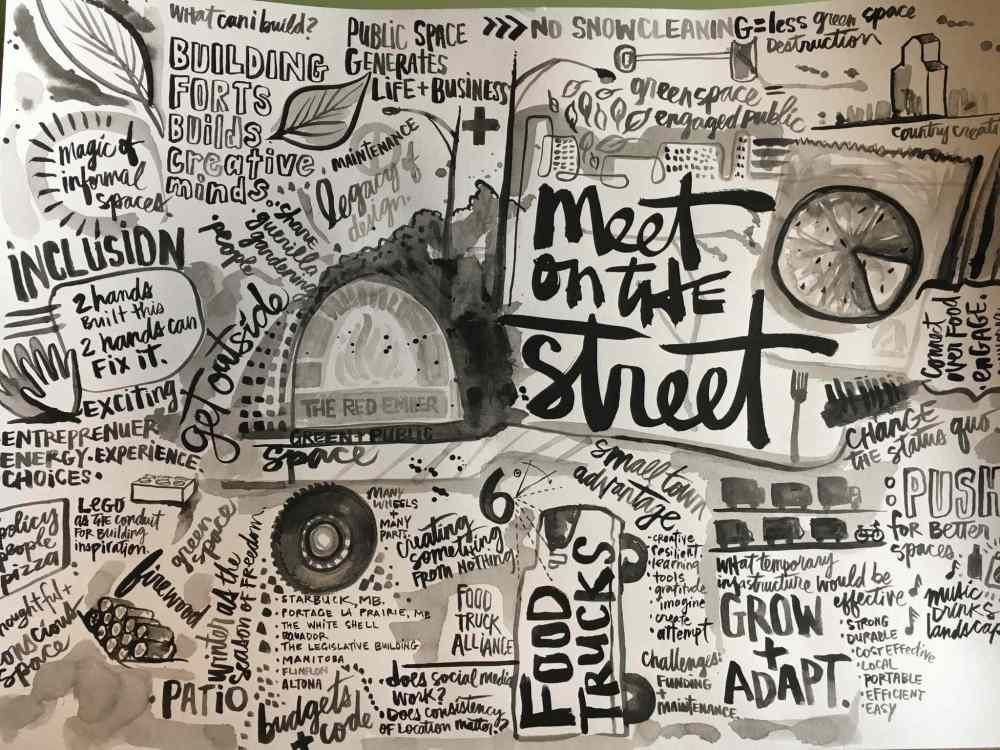 WHAT can i build?
BUILDING
FORTS
Builds
Creative
minds.
PUBLIC SPACE
GENERATES
LiFE + BUSINESS
>>> NO SNOWCLEANING = less green space
Destruction
greenspace
engaged public
country
magic of
informal
spaces.
MAINTENANCE
legacy of
design.
share
guerilla
gardening
people
INCLUSION
2 hands
Built this
2 hands can
FIX IT.
get outside
THE RED EMBER
GREEN + PUBLIC
space
meet
on THE
street
Connect
over Food
ENGAGE.
CHANGE
THE status quo
EXCITING
ENTREPRENUER
ENERGY. EXPERIENCE
CHOICES.
LEGO
AS THE conduit
FOR Building
inspiration.
policy
people
pizza
green
space
firewood
conscious
space
winter as the
Season of Freedom
PATIO
MANY
WHEELS
+
MANY
PARTS
6
creating
something
FROM NOTHING
• STARBUCK, MB.
• PORTAGE LA PRAIRIE, MB
• THE WHITE SHELL
• EQUADOR
• THE LEGISLATIVE BUILDING
• MANITOBA
• FLINFLON
• ALTONA
FOOD
TRUCK
ALLIANCE
budgets
+ code
does social media
WORK?
• Does consistency
OF LOCATION matter?
FOOD
TRUCKS
small town
advantage
• creative
• resilient
• learning
• tools
• gratitude
• imagine
• create
• attempt
Challenges:
FUNDING
+
MAINTENANCE
WHAT temporary
infastructure would be
effective
GROW
+
ADAPT.
• STRONG
• DURABLE
• COST EFFECTIVE
• LOCAL
• PORTABLE
• EFFICIENT
• EASY
: PUSH
for BETTER
spaces.
music
DRINKS